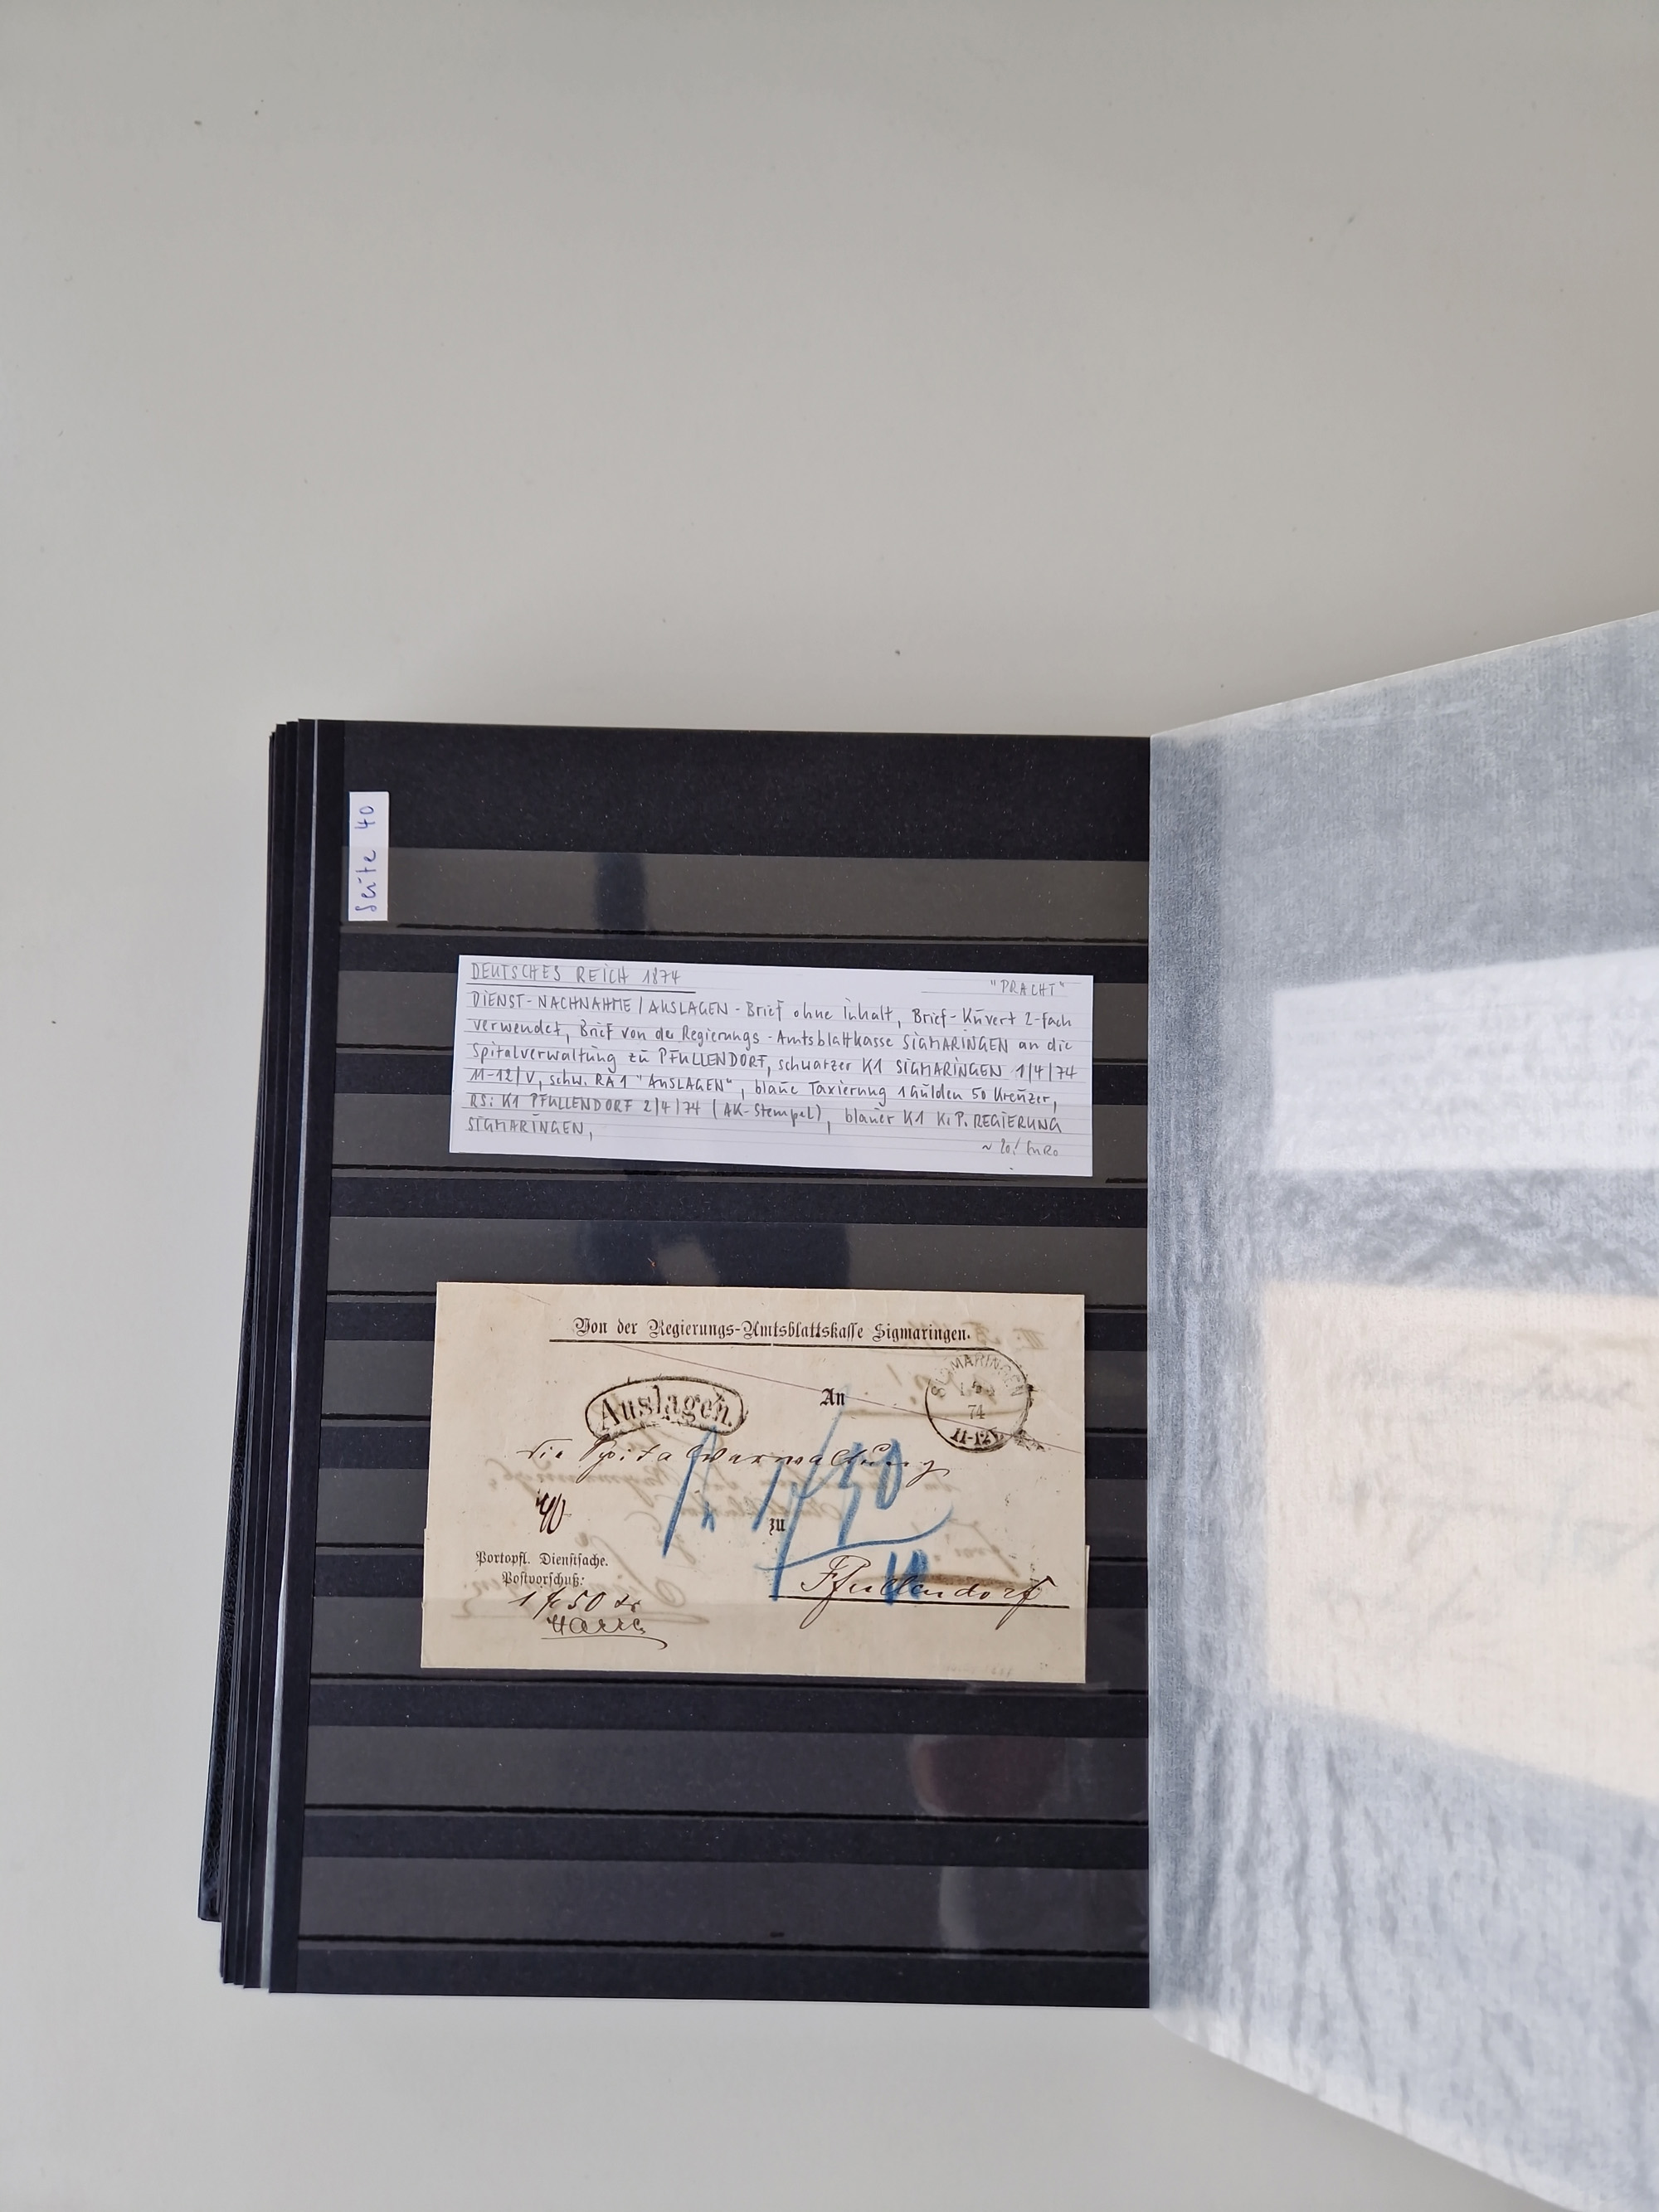 Seite 40
DEUTSCHES REICH 1874 "PRACHT"
DIENST-NACHNAHME/AUSLAGEN-Brief ohne Inhalt, Brief-Kuvert 2-fach
verwendet, Brief von der Regierungs-Amtsblattkasse SIGMARINGEN an die
Spitalverwaltung zu PFULLENDORF, schwarzer K1 SIGMARINGEN 1/4/74
11-12/V, schw. RA1 "AUSLAGEN", blaue Taxierung 1 Gulden 50 Kreuzer,
RS: K1 PFULLENDORF 2/4/74 (AK-Stempel), blauer K1 K.P. REGIERUNG
SIGMARINGEN,
EURO
Von der Regierungs-Amtsblattskasse Sigmaringen.
SIGMARINGEN
74
11-12V
Auslagen.
An
die Spitalverwaltung
1/50
zu
Portopfl. Dienstsache.
Postvorschuß:
Pfullendorf
1 f 50 kr